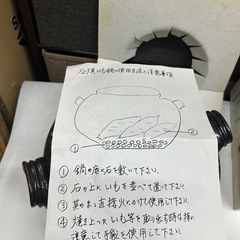 石焼いも鍋の使用方法と注意事項
①
②
① 鍋の底に石を敷いて下さい。
② 石の上にいもを並べて置いて下さい
③ 其のまま直接火にかけて使用して下さい
④ 焼き上ったいも等を取り出す時は特に
注意して手袋を使用して下さい。